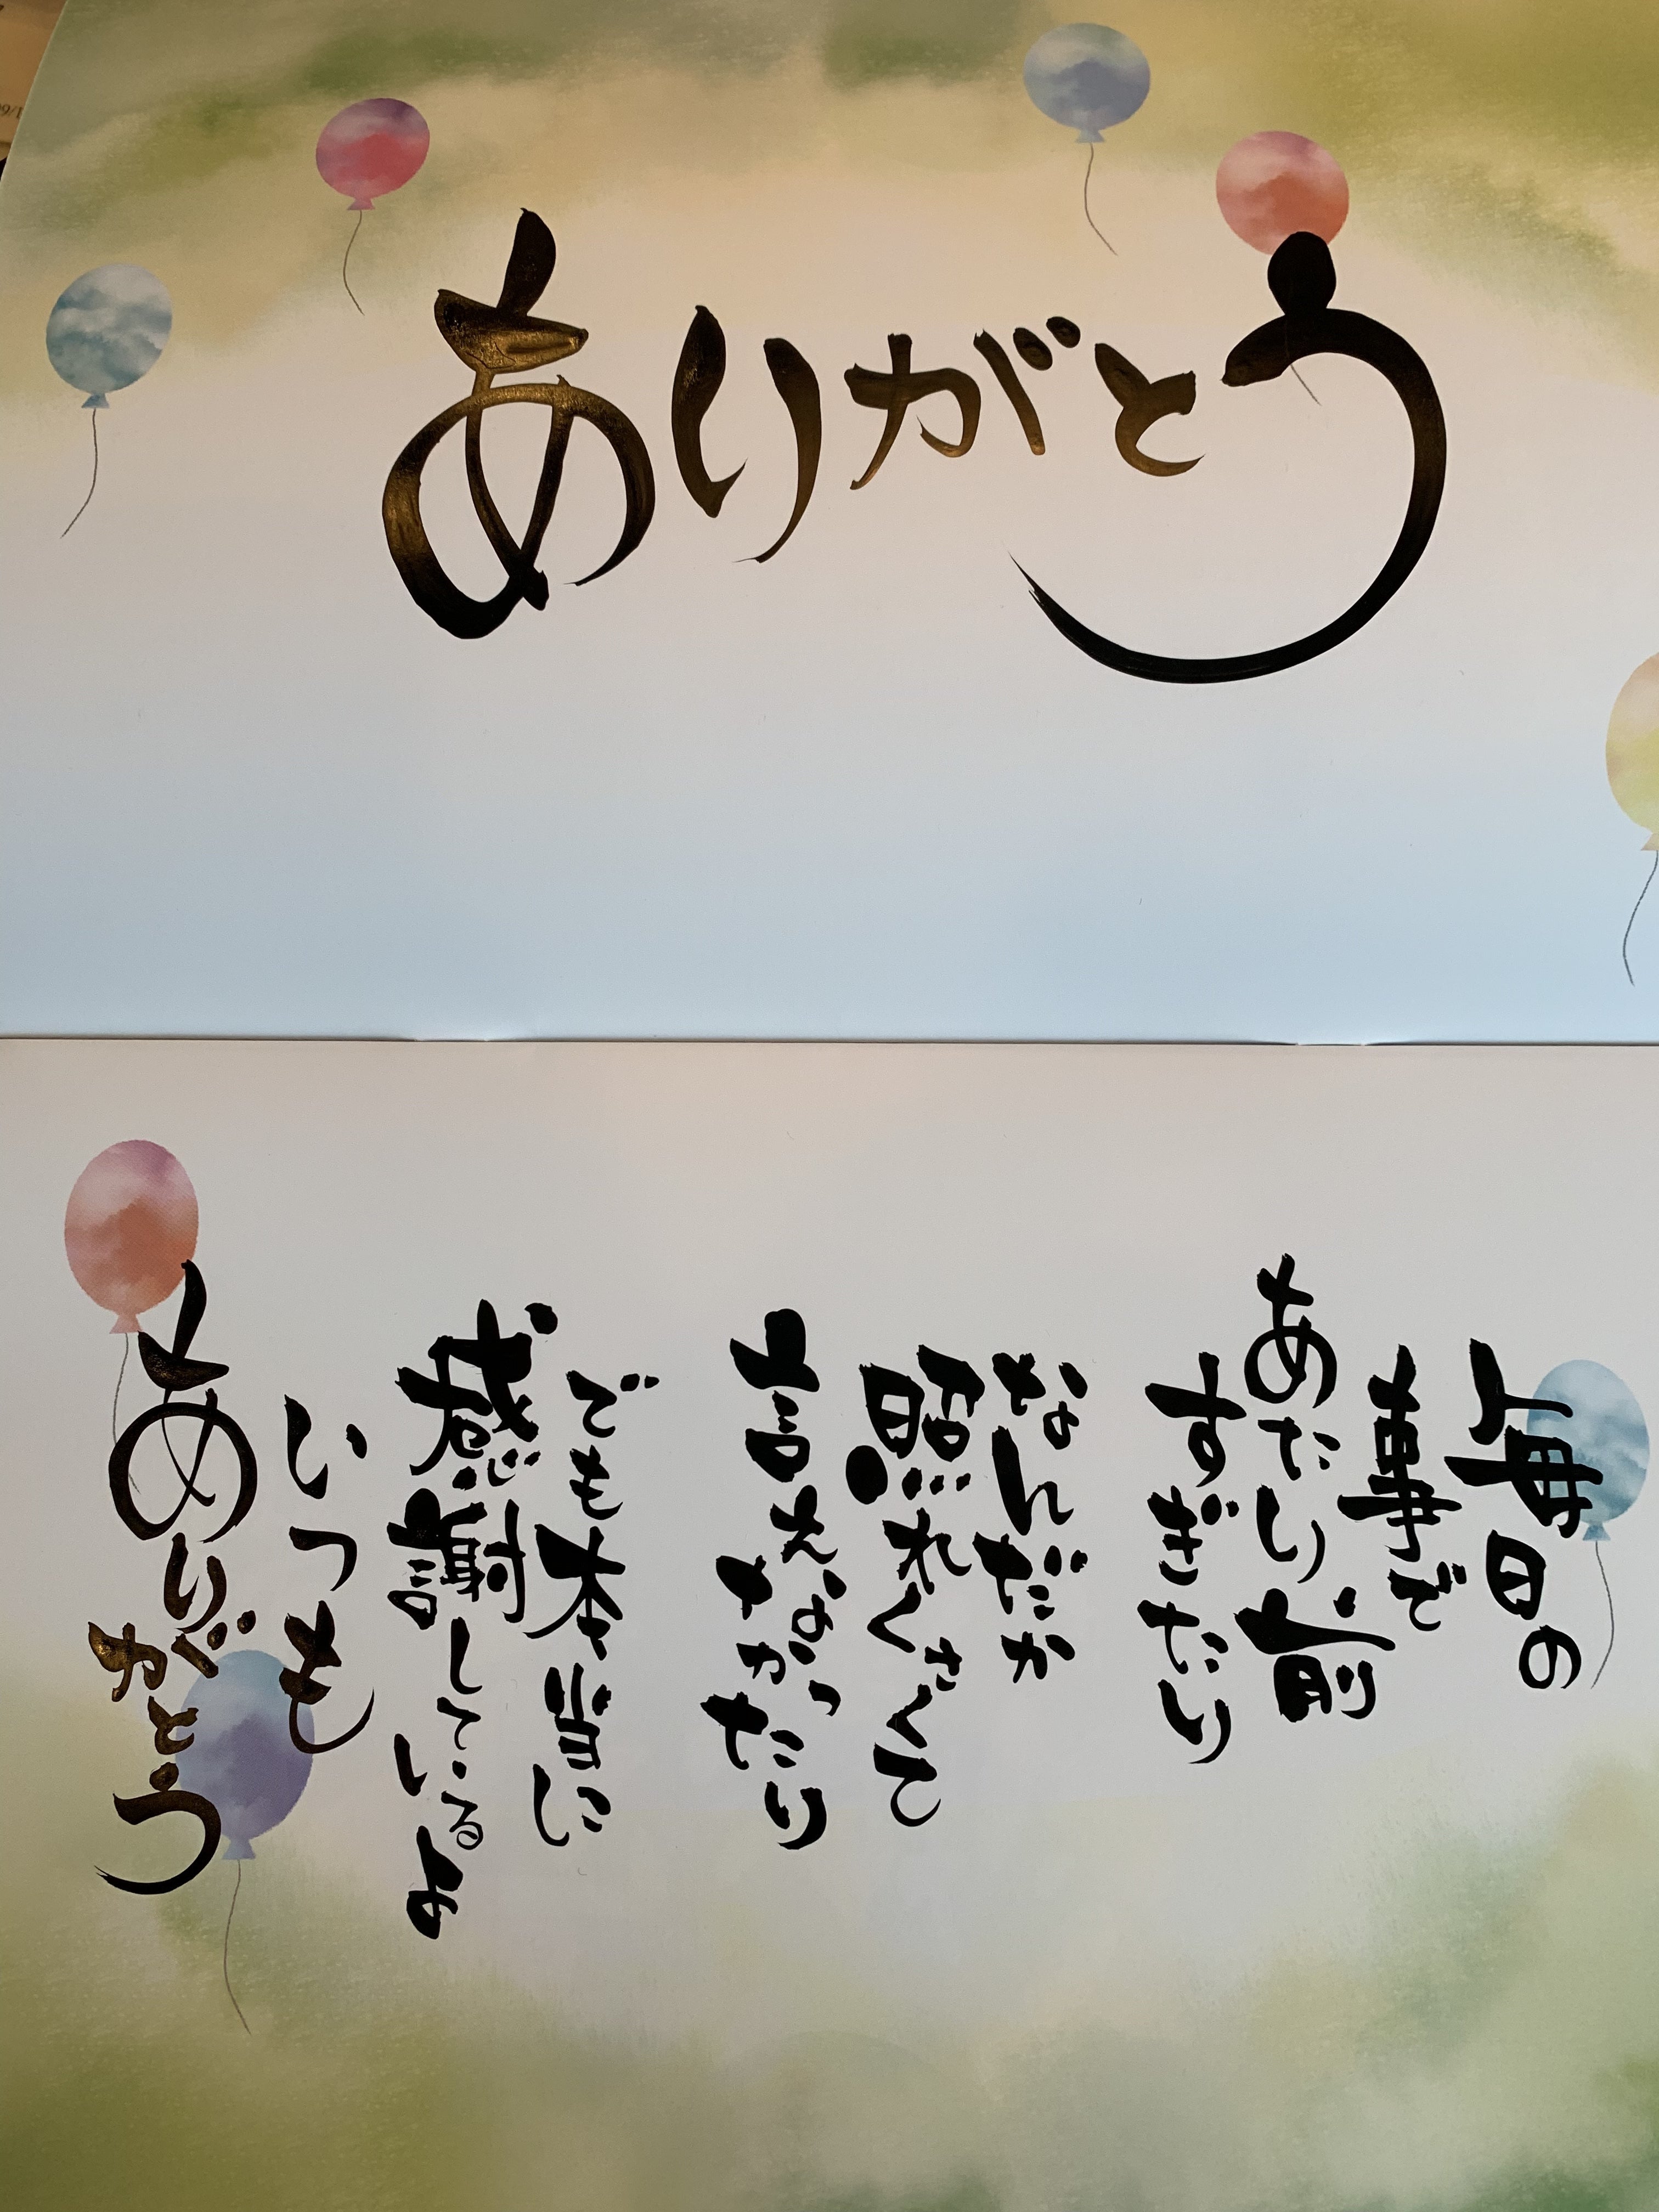 ありがとう
毎日の
事で
あたり前
すぎたり
なんだか
照れくさくて
言えなかったり
でも本当に
感謝しているよ
いつも
ありがとう